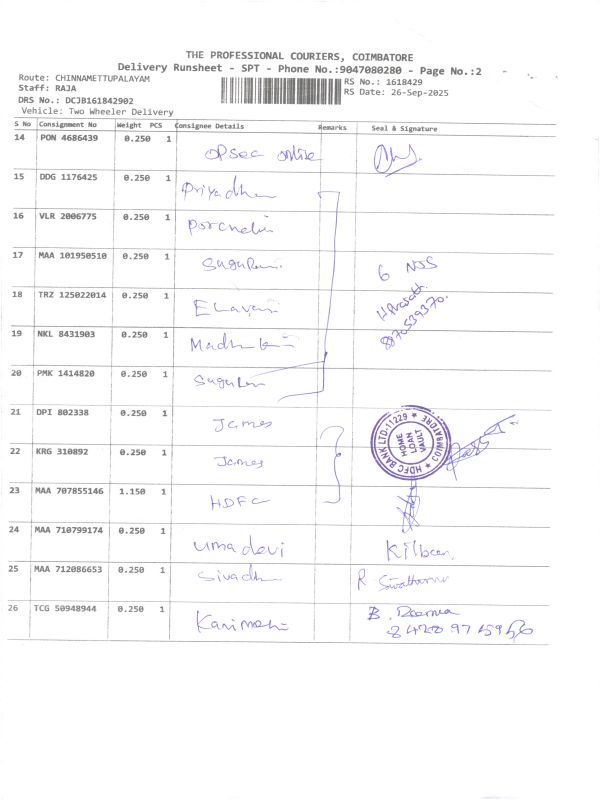 THE PROFESSIONAL COURIERS, COIMBATORE
Delivery Runsheet - SPT - Phone No.:9047080280 - Page No.:2
Route: CHINNAMETTUPALAYAM
RS No.: 1618429
Staff: RAJA
RS Date: 26-Sep-2025
DRS No.: DCJB161842902
Vehicle: Two Wheeler Delivery
S No Consignment No Weight PCS Consignee Details Remarks Seal & Signature
14 PON 4686439 0.250 1 opsec online
15 DDG 1176425 0.250 1
16 VLR 2006775 0.250 1
17 MAA 101950510 0.250 1
6 NOS
18 TRZ 125022014 0.250 1
19 NKL 8431903 0.250 1
20 PMK 1414820 0.250 1
21 DPI 802338 0.250 1 James
HDFC BANK LTD-11229 * COIMBATORE *
HOME
LOAN
VAULT
22 KRG 310892 0.250 1 James
23 MAA 707855146 1.150 1 HDFC
24 MAA 710799174 0.250 1 uma devi
25 MAA 712086653 0.250 1
26 TCG 50948944 0.250 1